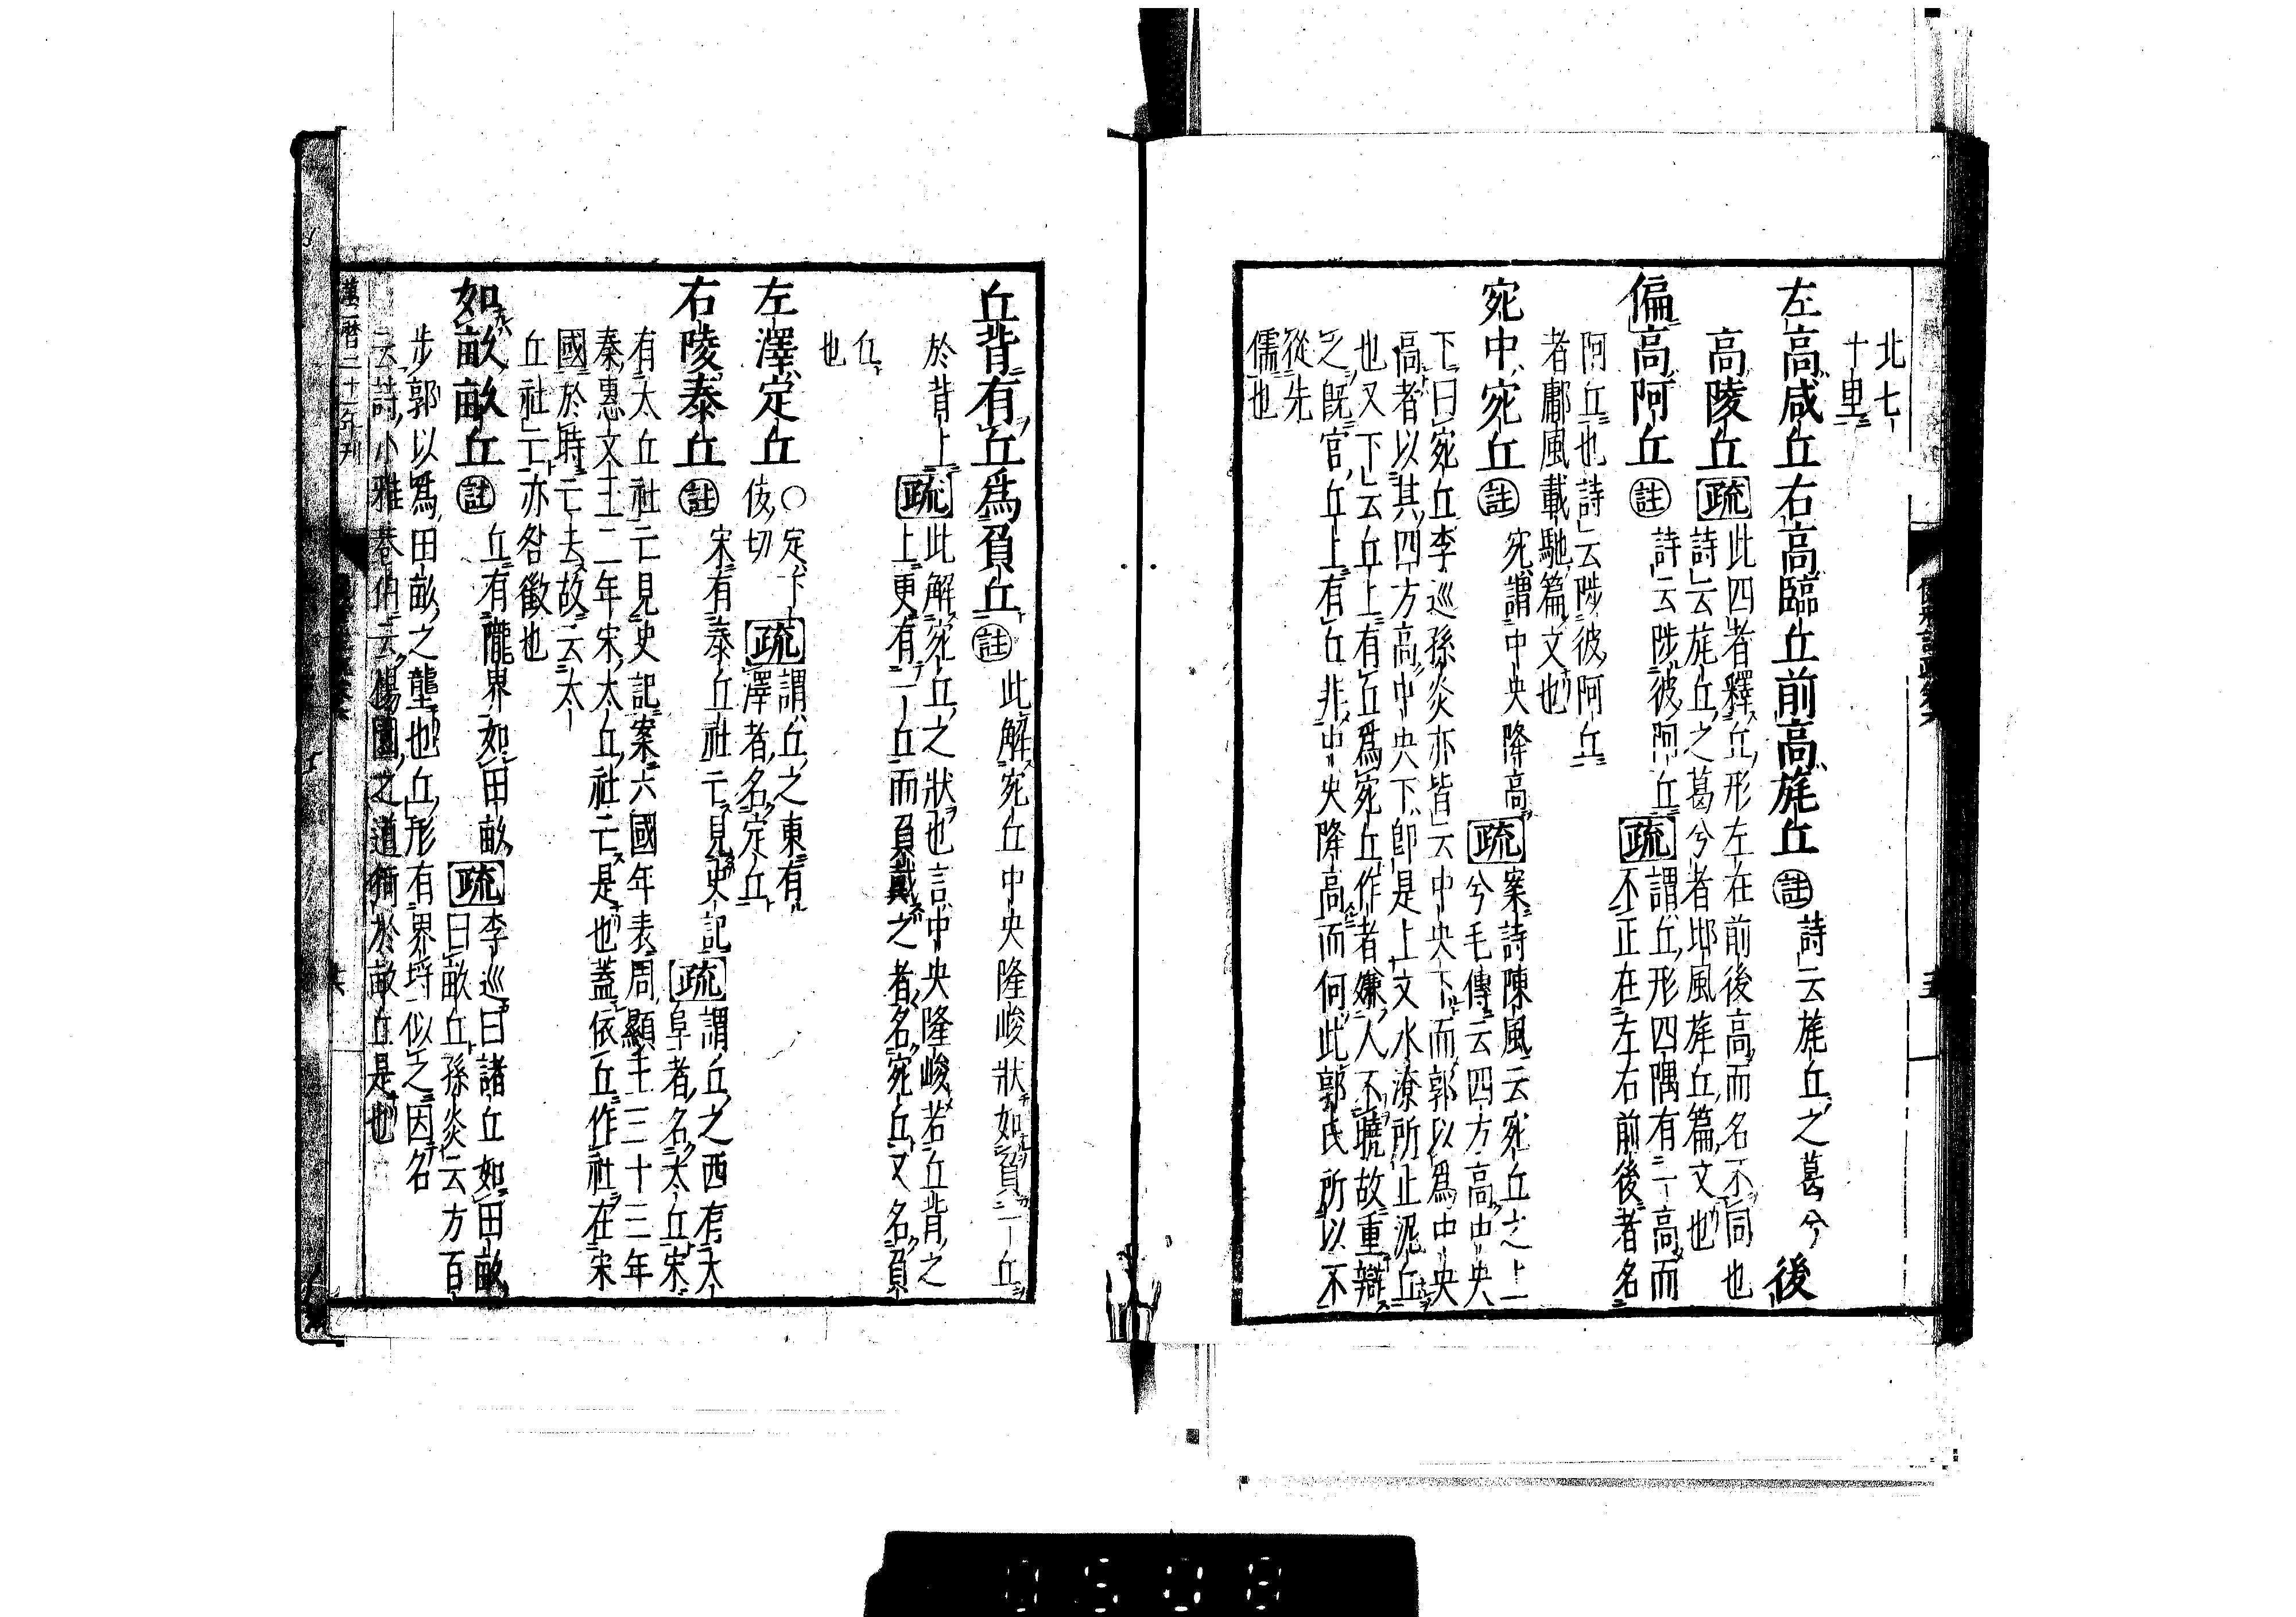 北七
十里
左高咸丘右高臨丘前高旄丘註詩云旄丘之葛兮後
高陵丘疏此四者釋丘形左在前後高而名不同也
詩云旄丘之葛兮者邶風旄丘篇文也
偏高阿丘註詩云陟彼阿丘疏謂丘形四隅有一高而
不正在左右前後者名
阿丘也詩云陟彼阿丘
者鄘風載馳篇文也
宛中宛丘註宛謂中央隆高疏案詩陳風云宛丘之上
兮毛傳云四方高中央
下曰宛丘李巡孫炎亦皆云中央下而郭以爲中央
高者以其四方高中央下即是上文水潦所止泥丘
也又下云丘上有丘爲宛丘作者嫌人不曉故重辯
之既言丘上有丘非中央隆高而何此郭氏所以不
從先
儒也
丘背有丘爲負丘註此解宛丘中央隆峻狀如負一丘
於背上疏此解宛丘之狀也言中央隆峻若丘背之
上更有一丘而負戴之者名宛丘又名負
丘
也
左澤定丘○定下
佞切疏謂丘之東有
澤者名定丘
右陵泰丘註宋有泰丘社亡見史記疏謂丘之西有大
阜者名太丘宋
有太丘社亡見史記案六國年表周顯王三十三年
秦惠文王二年宋太丘社亡是也蓋依丘作社在宋
國於時亡去故云太
丘社亡亦咎徵也
如畝畝丘註丘有隴界如田畝疏李巡曰諸丘如田畝
曰畝丘孫炎云方百
步郭以爲田畝之壟也丘形有界埒似之因名
云詩小雅巷伯云楊園之道猗於畝丘是也
萬曆二十一年刊